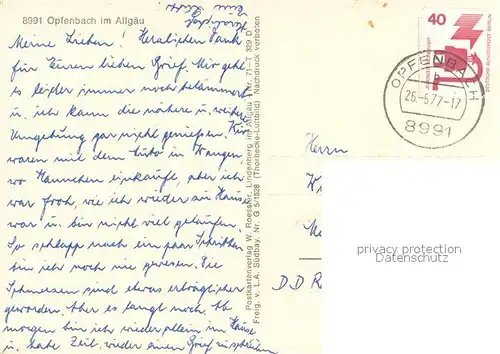 8991 Opfenbach im Allgäu
Meine Lieben! Herzlichen Dank
für Euren lieben Brief. Mir geht
es leider immer noch
u. ich kann die nähere u. weitere
Umgebung gar nicht genießen. Wir
waren mit dem Auto in Wangen,
wo Hannchen einkaufte, aber ich
war froh, wie ich wieder zu Hause
war u. bin nicht viel gelaufen.
So schlapp nach ein paar Schritten
bin ich noch nie gewesen. Die
Schmerzen sind etwas erträglicher
geworden. Aber es langt noch. Ab
morgen bin ich wieder allein im Haus
u. habe Zeit, wieder einen Brief zu schreiben
Herzlichst
Eure
Postkartenverlag W. Roessler, Lindenberg im Allgäu Nr. 71-1 329 D
Freig. v. L.A. Südbay. Nr. G 5/1528 (Thorbecke-Luftbild) Nachdruck verboten
40
OPFENBACH
b
26.-5.77-17
8991
Herrn
privacy protection
SAMMLER.COM
DDR